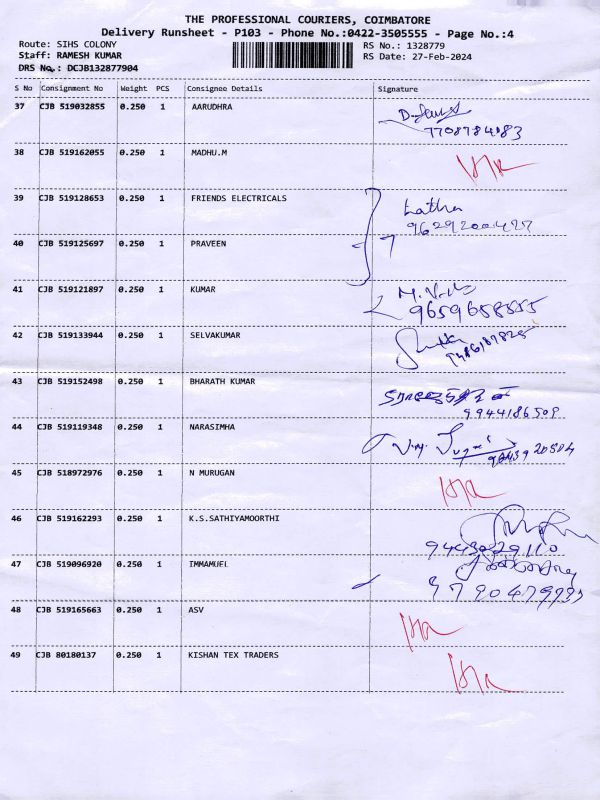 THE PROFESSIONAL COURIERS, COIMBATORE
Delivery Runsheet - P103 - Phone No.:0422-3505555 - Page No.:4
Route: SIHS COLONY RS No.: 1328779
Staff: RAMESH KUMAR RS Date: 27-Feb-2024
DRS No.: DCJB132877904
S No Consignment No Weight PCS Consignee Details Signature
37 CJB 519032855 0.250 1 AARUDHRA
7708784083
38 CJB 519162055 0.250 1 MADHU.M
39 CJB 519128653 0.250 1 FRIENDS ELECTRICALS Latha
9629200427
40 CJB 519125697 0.250 1 PRAVEEN
41 CJB 519121897 0.250 1 KUMAR
9659658555
42 CJB 519133944 0.250 1 SELVAKUMAR
43 CJB 519152498 0.250 1 BHARATH KUMAR
9944186509
44 CJB 519119348 0.250 1 NARASIMHA
45 CJB 518972976 0.250 1 N MURUGAN
46 CJB 519162293 0.250 1 K.S.SATHIYAMOORTHI
9443029110
47 CJB 519096920 0.250 1 IMMAMUEL
48 CJB 519165663 0.250 1 ASV
49 CJB 80180137 0.250 1 KISHAN TEX TRADERS